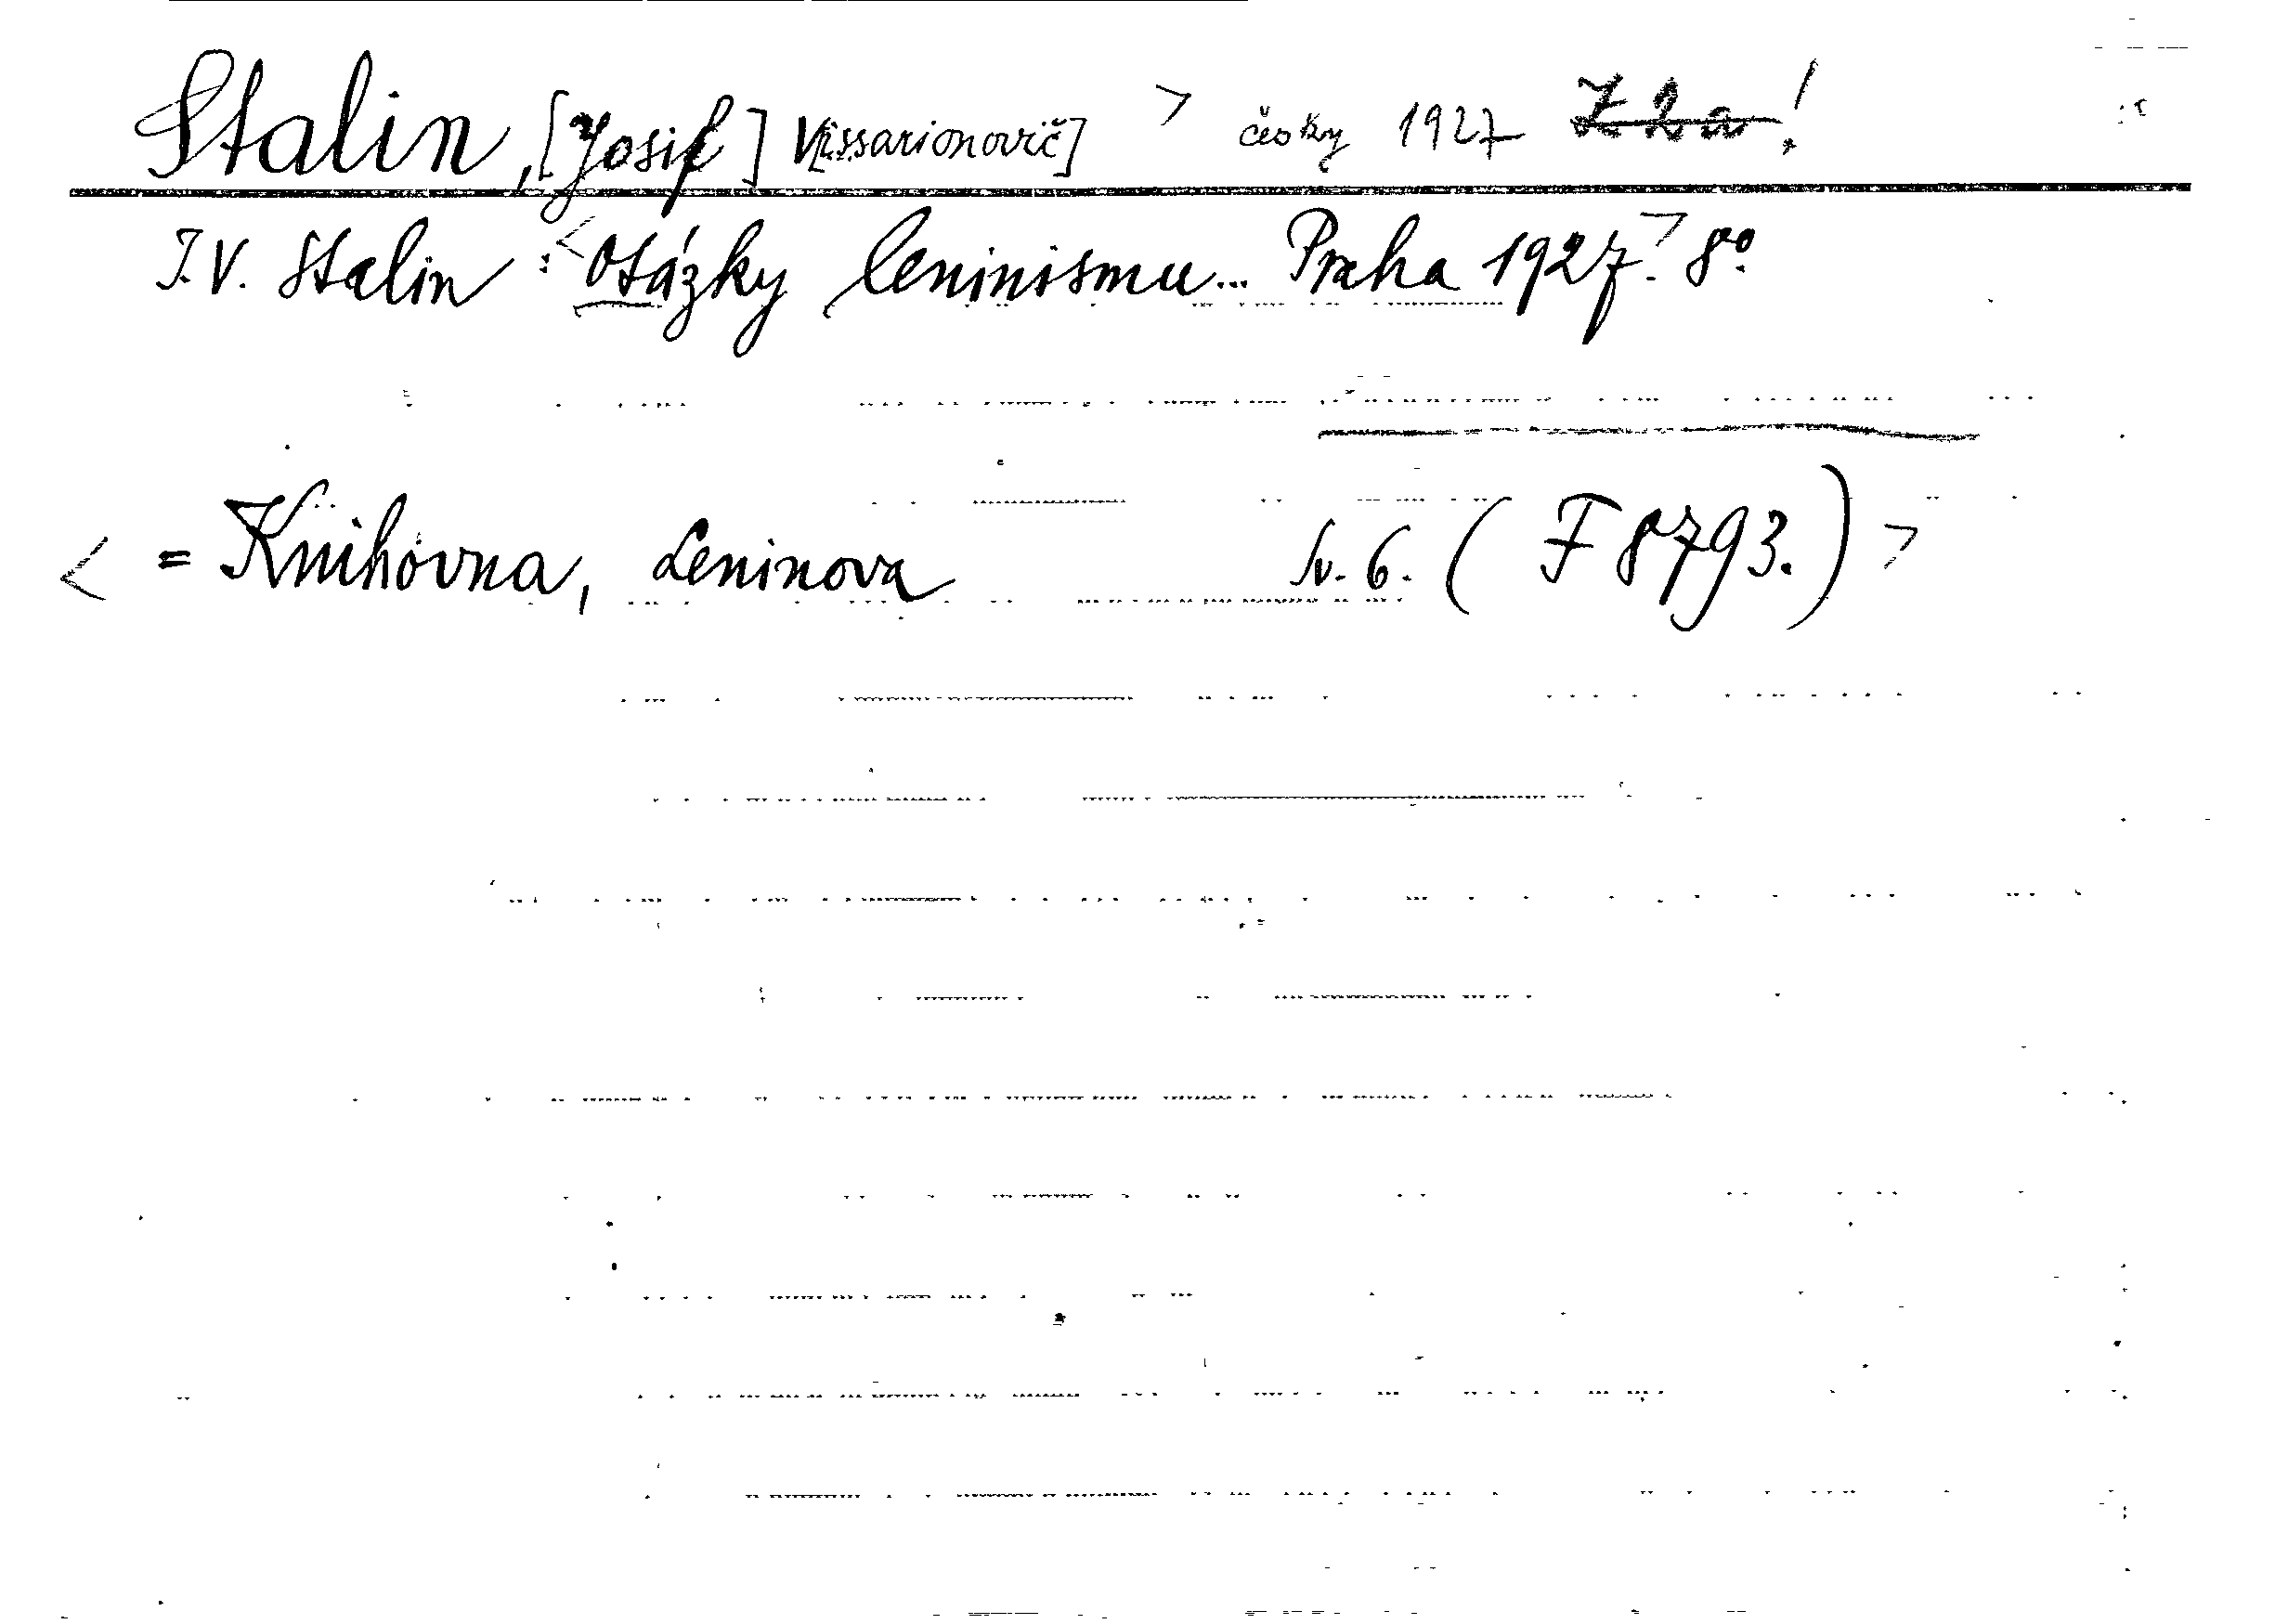 Stalin, [Josif] V[issarionovič] > česky 1927 Z 2a!
I.V. Stalin : <Otázky leninismu... Praha 1927.> 8°.
< = Knihovna, Leninova Sv. 6. (F 8793.) >